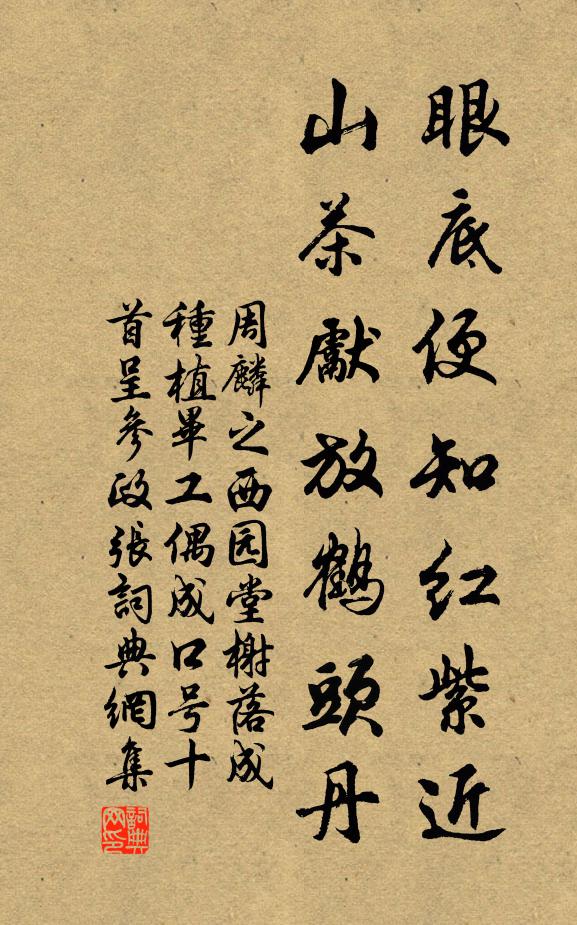 眼底便知红紫近
山茶獻放鶴頭丹
周麟之西园堂榭落成
種植畢工偶成口号十
首呈參政張詞典網集
詞典網印